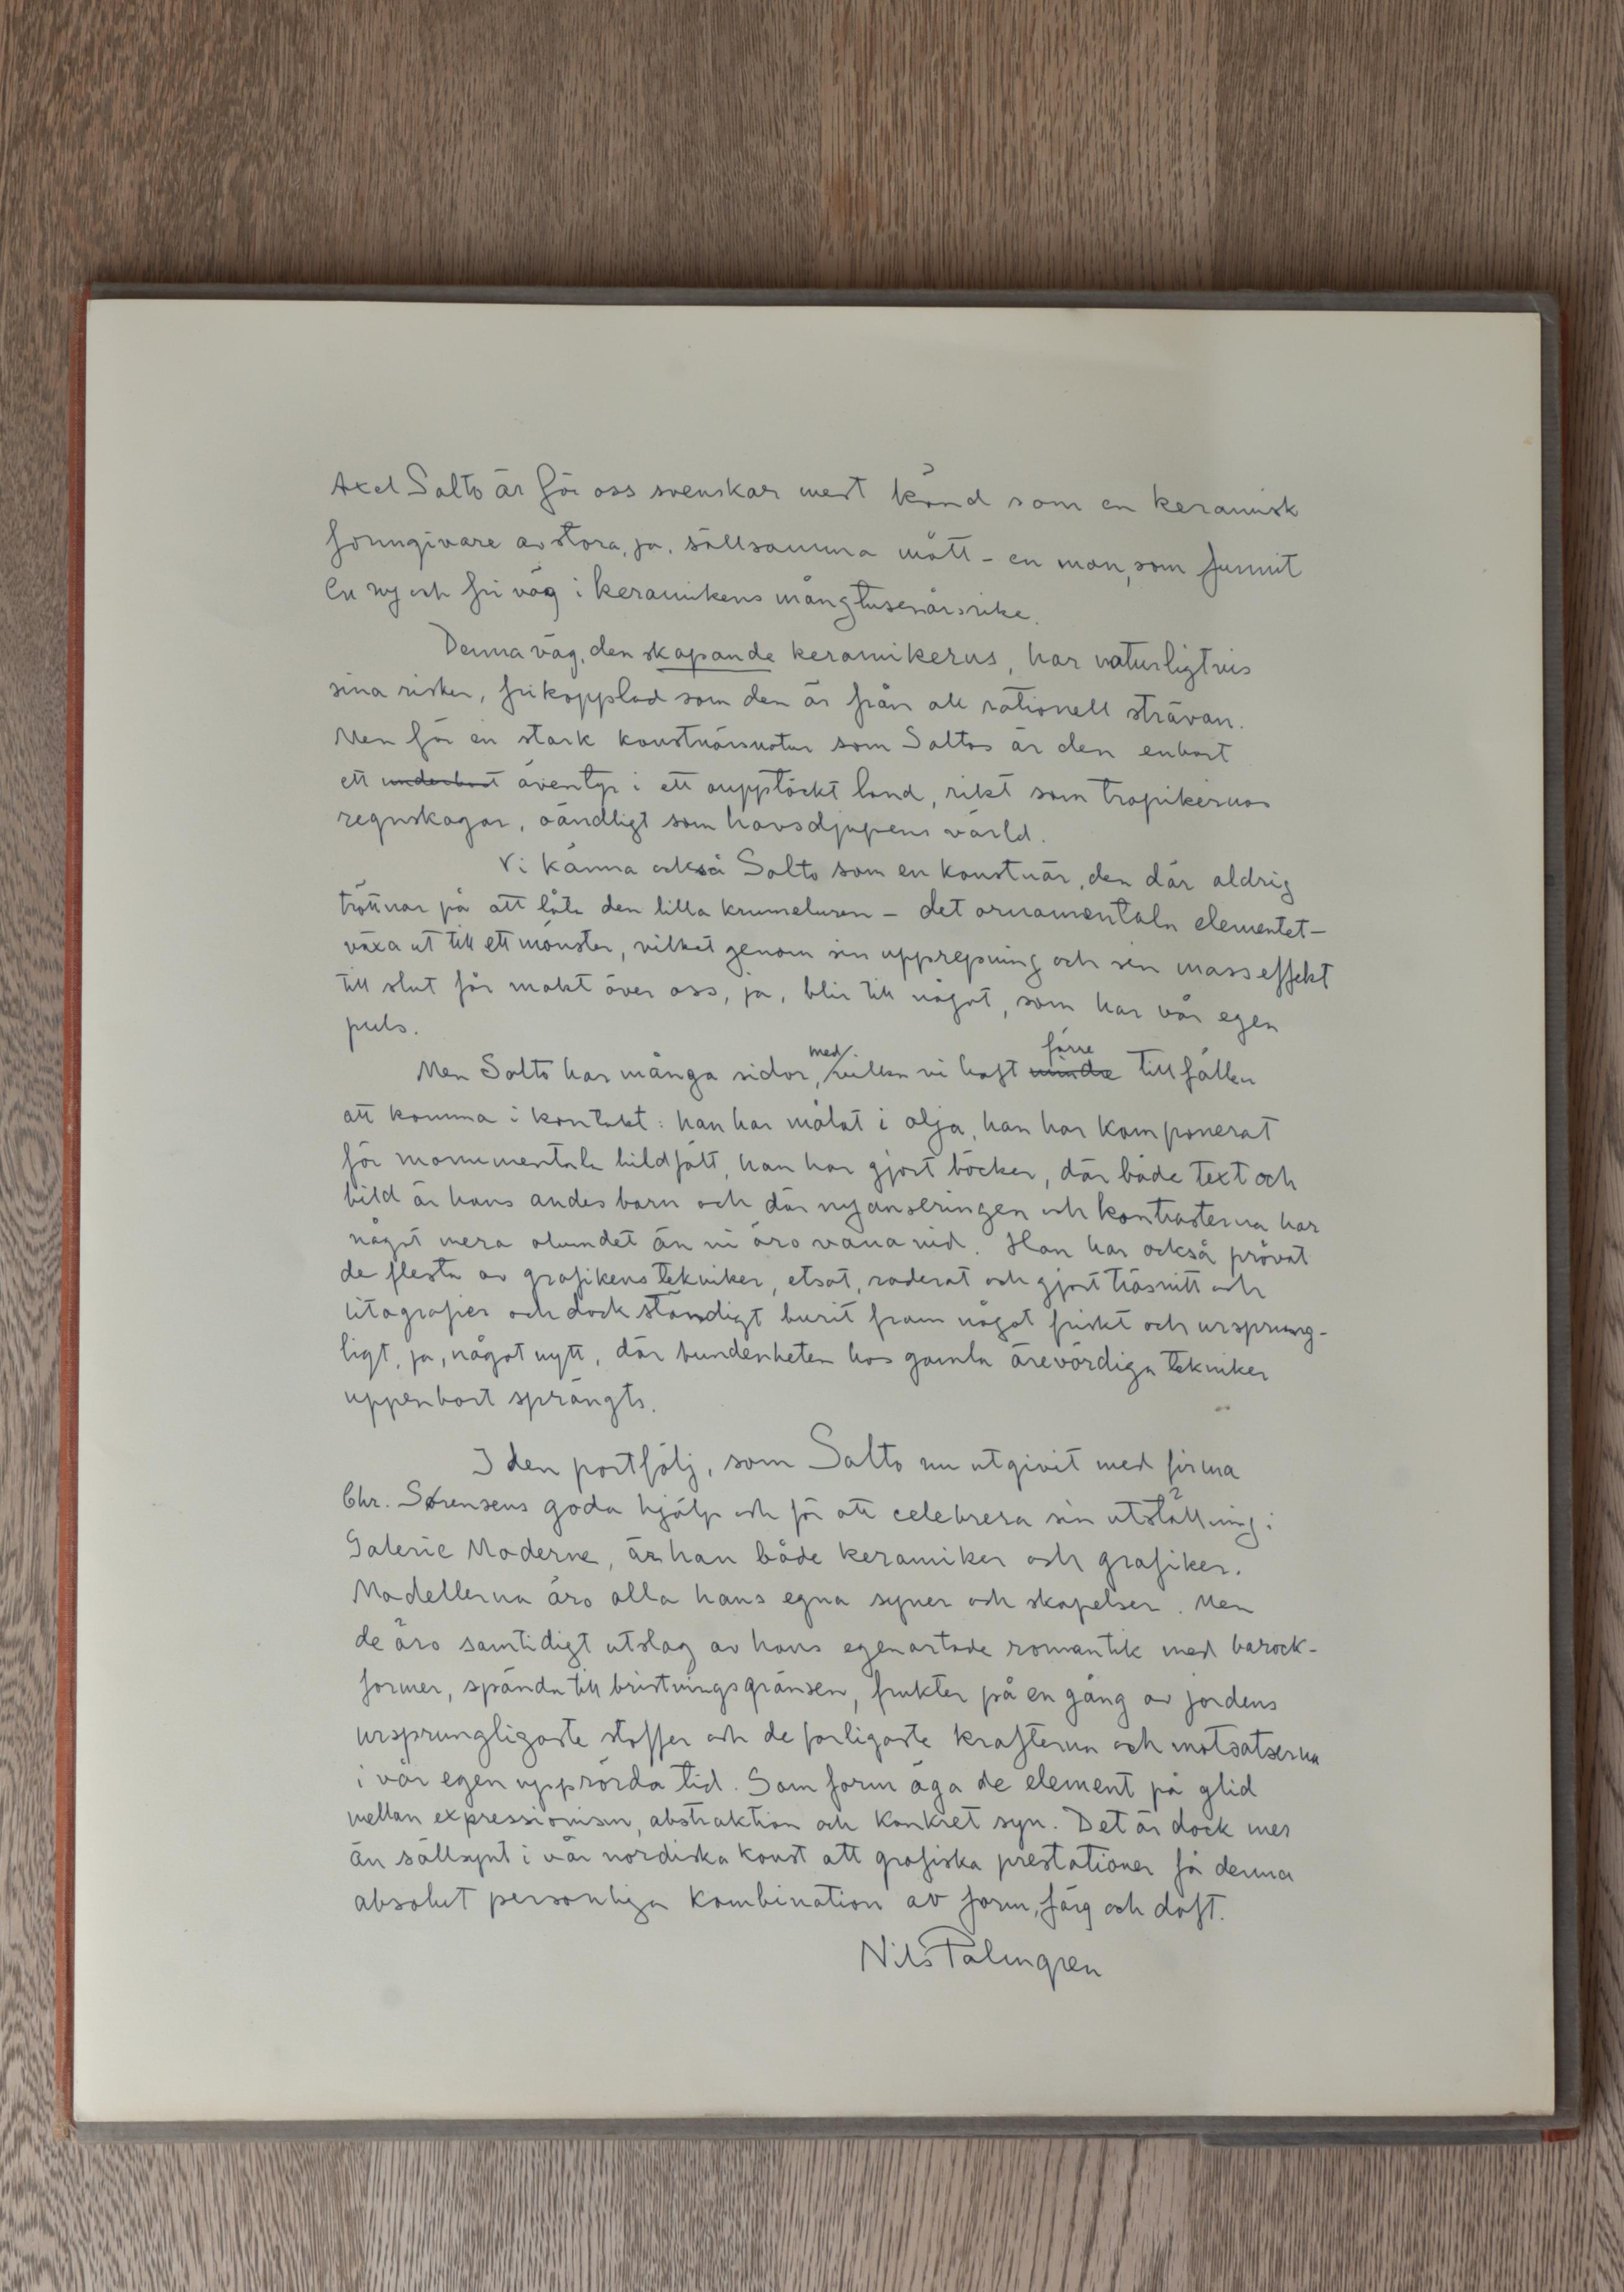 Axel Salto är för oss svenskar mest känd som en keramisk
formgivare av stora, ja, sällsamma mått - en man, som funnit
en ny och fri väg i keramikens mångtusenårsrike.
Denna väg, den skapande keramikerns, har naturligtvis
sina risker, frikopplad som den är från all rationell strävan.
Men för en stark konstnärsnatur som Saltos är den enbart
ett underbart äventyr i ett oupptäckt land, rikt som tropikernas
regnskogar, oändligt som havsdjupens värld.
Vi känna också Salto som en konstnär, den där aldrig
tröttnar på att låta den lilla krumeluren - det ornamentala elementet -
växa ut till ett mönster, vilket genom sin upprepning och sin masseffekt
till slut får makt över oss, ja, blir till något, som har vår egen
puls.
Men Salto har många sidor, med vilka vi haft mindre färre tillfällen
att komma i kontakt: han har målat i olja, han har komponerat
för monumentala bildfält, han har gjort böcker, där både text och
bild är hans andes barn och där nyanseringen och kontrasterna har
något mera olundet än vi äro vana vid. Han har också prövat
de flesta av grafikens tekniker, etsat, raderat och gjort träsnitt och
litografier och dock ständigt burit fram något friskt och ursprung-
ligt, ja, något nytt, där bundenheten hos gamla ärevördiga tekniker
uppenbart sprängts.
I den portfölj, som Salto nu utgivit med firma
Chr. Sørensens goda hjälp och för att celebrera sin utställning i
Galerie Moderne, är han både keramiker och grafiker.
Modellerna äro alla hans egna syner och skapelser. Men
de äro samtidigt utslag av hans egenartade romantik med barock-
former, spända till bristningsgränsen, frukter på en gång av jordens
ursprungligaste stoffer och de farligaste krafterna och motsatserna
i vår egen upprörda tid. Som form äga de element på glid
mellan expressionism, abstraktion och konkret syn. Det är dock mer
än sällsynt i vår nordiska konst att grafiska prestationer få denna
absolut personliga kombination av form, färg och doft.
Nils Palmgren